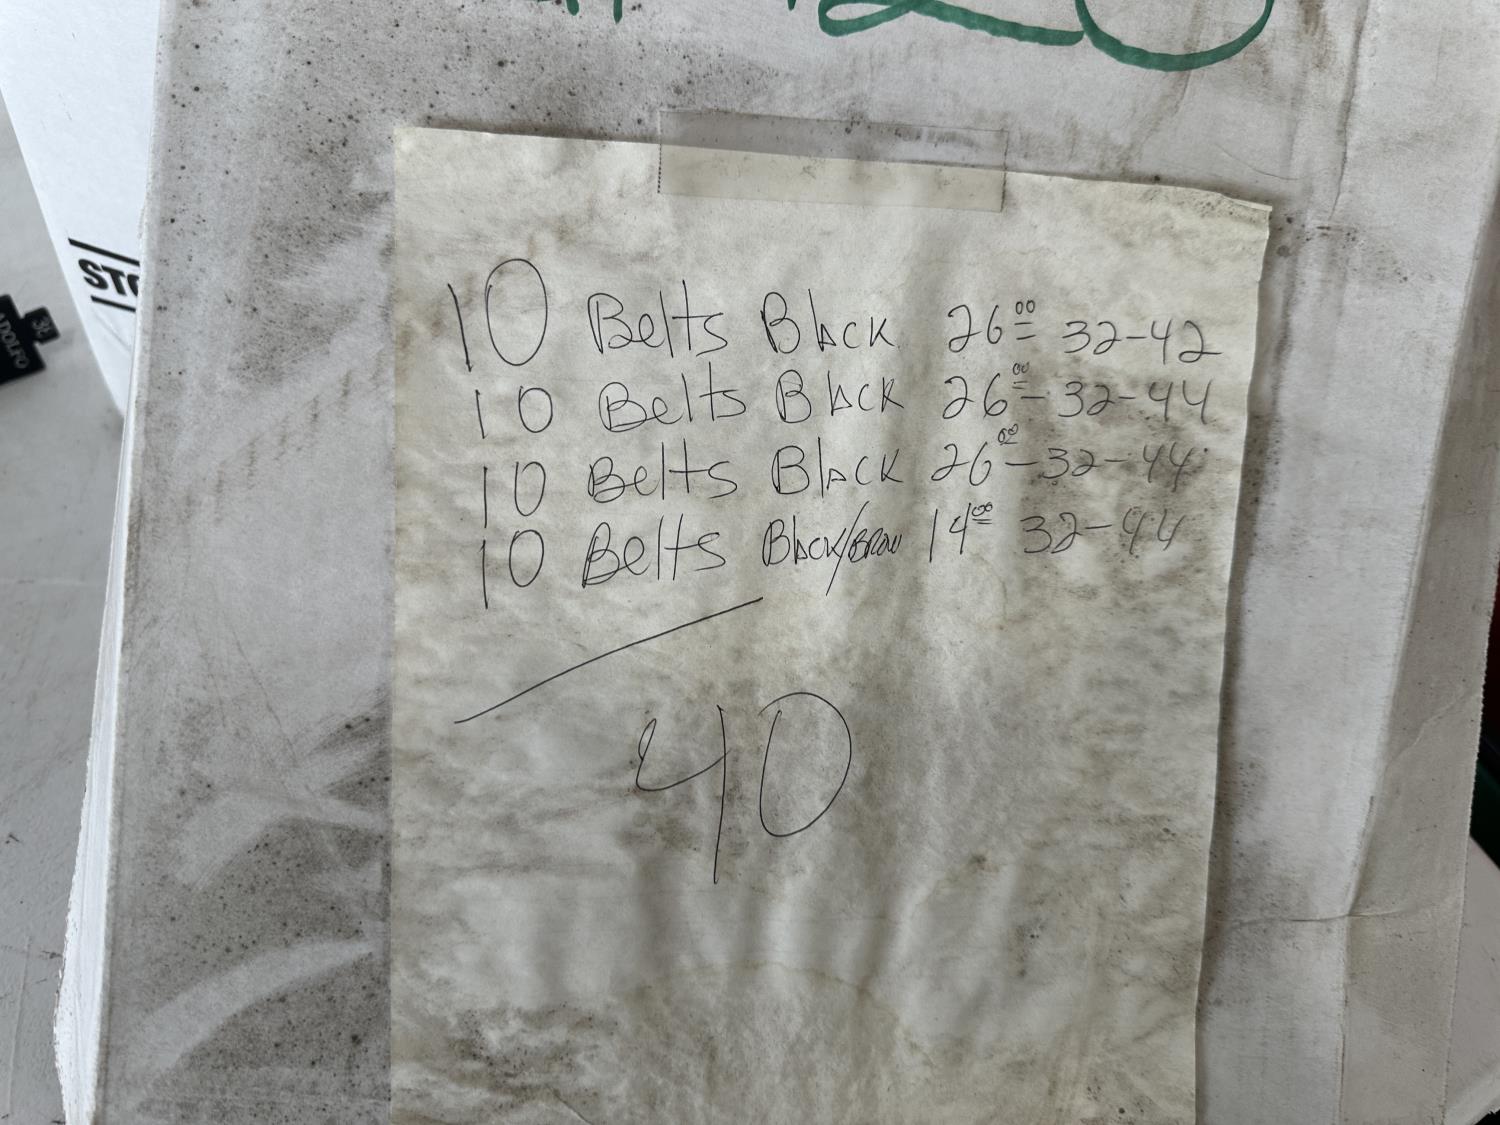 STO
38
ADOLFO
10 Belts Black 26⁰⁰ 32-42
10 Belts Black 26⁰⁰- 32-44
10 Belts Black 26⁰⁰-32-44
10 Belts Black/Brow 14⁰⁰ 32-44
40